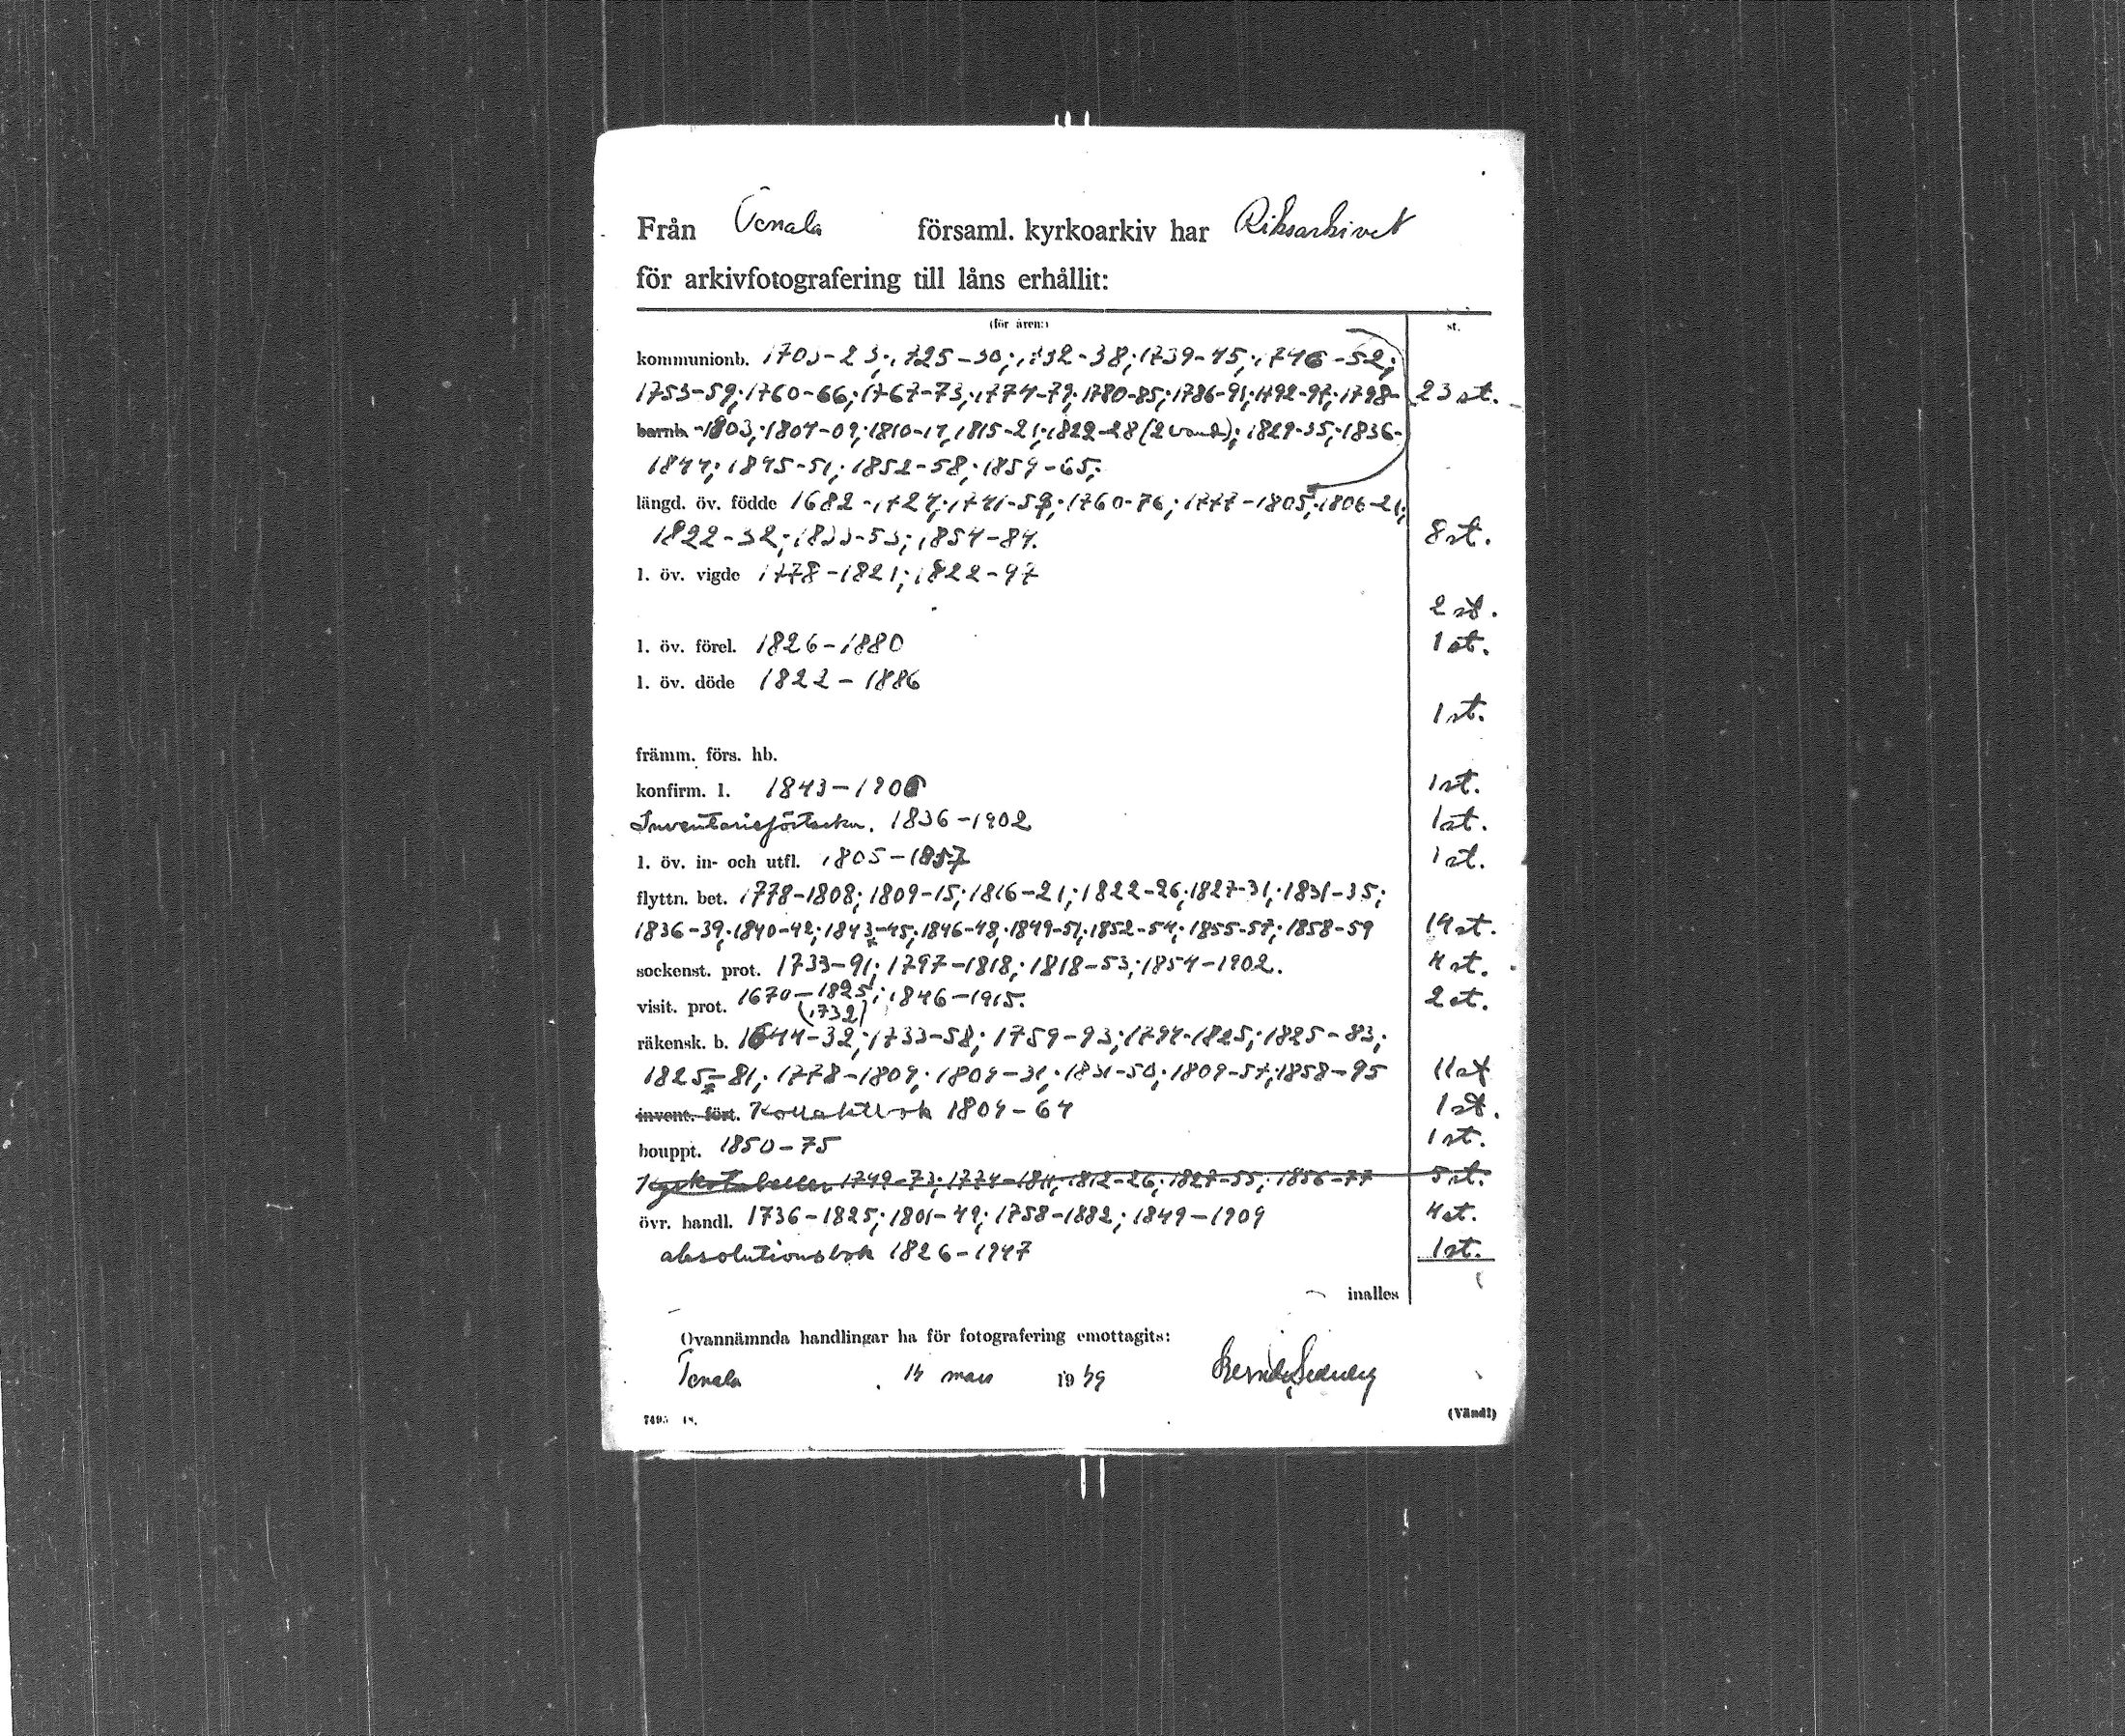 Från Tenala församl. kyrkoarkiv har Riksarkivet
för arkivfotografering till låns erhållit:
(för åren:) st.
kommunionb. 1703-23; 1725-30; 1732-38; 1739-45; 1746-52;
1753-59; 1760-66; 1767-73; 1774-79; 1780-85; 1786-91; 1792-97; 1798- 23 st.
barnb. -1803; 1804-09; 1810-14; 1815-21; 1822-28 (2 band); 1829-35; 1836-
1844; 1845-51; 1852-58; 1859-65;
längd. öv. födde 1682-1727; 1741-59; 1760-76; 1777-1805; 1806-21;
1822-32; 1833-53; 1854-84. 8 st.
l. öv. vigde 1778-1821; 1822-97
2 st.
l. öv. förel. 1826-1880 1 st.
l. öv. döde 1822-1886
1 st.
främm. förs. hb.
konfirm. l. 1843-1906 1 st.
Inventarieförteckn. 1836-1902 1 st.
l. öv. in- och utfl. 1805-1857 1 st.
flyttn. bet. 1778-1808; 1809-15; 1816-21; 1822-26; 1827-31; 1831-35;
1836-39; 1840-42; 1843-45; 1846-48; 1849-51; 1852-54; 1855-57; 1858-59 14 st.
sockenst. prot. 1733-91; 1797-1818; 1818-53; 1854-1902. 4 st.
visit. prot. 1670-1825; 1846-1915. 2 st.
(1732)
räkensk. b. 1644-32; 1733-58; 1759-93; 1794-1825; 1825-83;
1825-81; 1778-1809; 1809-31; 1831-50; 1809-57; 1858-95 11 st
invent. fört. Kollektbok 1804-64 1 st.
bouppt. 1850-75 1 st.
Kyrkotabeller 1749-73; 1774-1811; 1812-26; 1827-55; 1856-77 5 st.
övr. handl. 1736-1825; 1801-49; 1758-1882; 1849-1909 4 st.
absolutionsbok 1826-1947 1 st.
inalles
Ovannämnda handlingar ha för fotografering emottagits:
Tenala 14 mars 1949
7495 48.
(Vänd!)